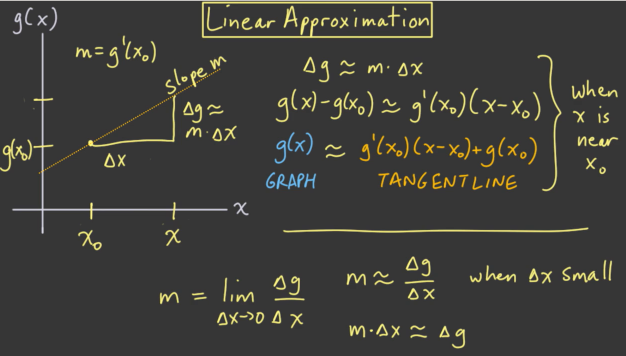 Linear Approximation
g(x)
m = g'(x₀)
slope m
Δg ≈
m·Δx
g(x₀)
Δx
x
x₀
x
Δg ≈ m·Δx
g(x)-g(x₀) ≈ g'(x₀)(x-x₀)
g(x) ≈ g'(x₀)(x-x₀)+g(x₀)
GRAPH TANGENT LINE
when
x is
near
x₀
m = lim Δx→0 Δg/Δx
m ≈ Δg/Δx when Δx small
m·Δx ≈ Δg